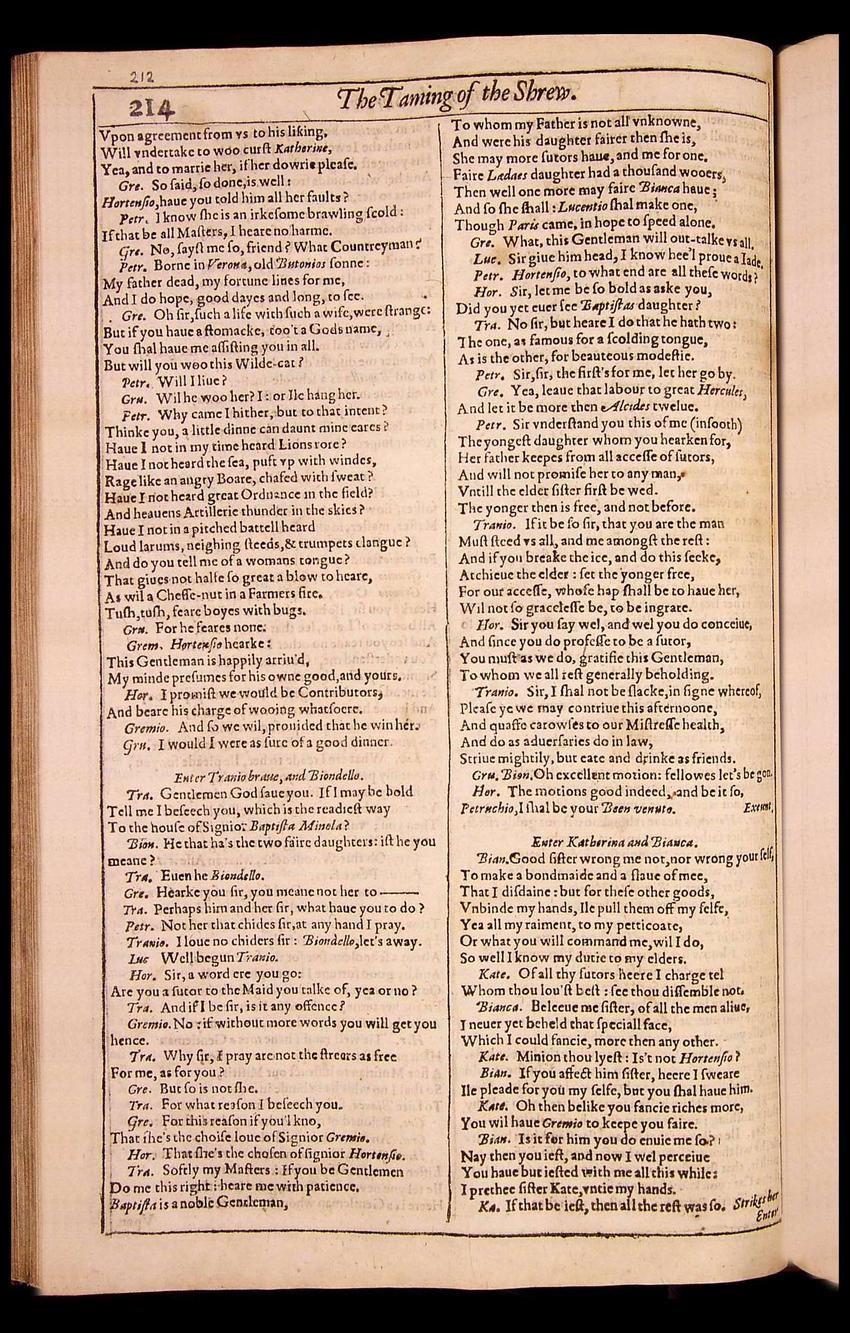 212
214
The Taming of the Shrew.
Vpon agreement from vs to his liking,
Will vndertake to woo curst Katherine,
Yea, and to marrie her, if her dowrie please.
Gre. So said, so done, is well:
Hortensio, haue you told him all her faults?
Petr. I know she is an irkesome brawling scold:
If that be all Masters, I heare no harme.
Gre. No, sayst me so, friend? What Countreyman?
Petr. Borne in Verona, old Butonios sonne:
My father dead, my fortune liues for me,
And I do hope, good dayes and long, to see.
Gre. Oh sir, such a life with such a wife, were strange:
But if you haue a stomacke, too't a Gods name,
You shal haue me assisting you in all.
But will you woo this Wilde-cat?
Petr. Will I liue?
Gru. Wil he woo her? I: or Ile hang her.
Petr. Why came I hither, but to that intent?
Thinke you, a little dinne can daunt mine eares?
Haue I not in my time heard Lions rore?
Haue I not heard the sea, puft vp with windes,
Rage like an angry Boare, chafed with sweat?
Haue I not heard great Ordnance in the field?
And heauens Artillerie thunder in the skies?
Haue I not in a pitched battell heard
Loud larums, neighing steeds, & trumpets clangue?
And do you tell me of a womans tongue?
That giues not halfe so great a blow to heare,
As wil a Chesse-nut in a Farmers fire.
Tush, tush, feare boyes with bugs.
Gru. For he feares none.
Grem. Hortensio hearke:
This Gentleman is happily arriu'd,
My minde presumes for his owne good, and yours.
Hor. I promist we would be Contributors,
And beare his charge of wooing whatsoere.
Gremio. And so we wil, prouided that he win her.
Gru. I would I were as sure of a good dinner.
Enter Tranio braue, and Biondello.
Tra. Gentlemen God saue you. If I may be bold
Tell me I beseech you, which is the readiest way
To the house of Signior Baptista Minola?
Bion. He that ha's the two faire daughters: ist he you
meane?
Tra. Euen he Biondello.
Gre. Hearke you sir, you meane not her to ——
Tra. Perhaps him and her sir, what haue you to do?
Petr. Not her that chides sir, at any hand I pray.
Tranio. I loue no chiders sir: Biondello, let's away.
Luc Well begun Tranio.
Hor. Sir, a word ere you go:
Are you a sutor to the Maid you talke of, yea or no?
Tra. And if I be sir, is it any offence?
Gremio. No: if without more words you will get you
hence.
Tra. Why sir, I pray are not the streets as free
For me, as for you?
Gre. But so is not she.
Tra. For what reason I beseech you.
Gre. For this reason if you'l kno,
That she's the choise loue of Signior Gremio.
Hor. That she's the chosen of signior Hortensio.
Tra. Softly my Masters: If you be Gentlemen
Do me this right: heare me with patience.
Baptista is a noble Gentleman,
To whom my Father is not all vnknowne,
And were his daughter fairer then she is,
She may more sutors haue, and me for one.
Faire Ladaes daughter had a thousand wooers,
Then well one more may faire Bianca haue;
And so she shall: Lucentio shal make one,
Though Paris came, in hope to speed alone.
Gre. What, this Gentleman will out-talke vs all.
Luc. Sir giue him head, I know hee'l proue a Iade.
Petr. Hortensio, to what end are all these words?
Hor. Sir, let me be so bold as aske you,
Did you yet euer see Baptistas daughter?
Tra. No sir, but heare I do that he hath two:
The one, as famous for a scolding tongue,
As is the other, for beauteous modestie.
Petr. Sir, sir, the first's for me, let her go by.
Gre. Yea, leaue that labour to great Hercules,
And let it be more then Alcides twelue.
Petr. Sir vnderstand you this of me (insooth)
The yongest daughter whom you hearken for,
Her father keepes from all accesse of sutors,
And will not promise her to any man,
Vntill the elder sister first be wed.
The yonger then is free, and not before.
Tranio. If it be so sir, that you are the man
Must steed vs all, and me amongst the rest:
And if you breake the ice, and do this seeke,
Atchieue the elder: set the yonger free,
For our accesse, whose hap shall be to haue her,
Wil not so gracelesse be, to be ingrate.
Hor. Sir you say wel, and wel you do conceiue,
And since you do professe to be a sutor,
You must as we do, gratifie this Gentleman,
To whom we all rest generally beholding.
Tranio. Sir, I shal not be slacke, in signe whereof,
Please ye we may contriue this afternoone,
And quaffe carowses to our Mistresse health,
And do as aduersaries do in law,
Striue mightily, but eate and drinke as friends.
Gru. Bion. Oh excellent motion: fellowes let's be gon.
Hor. The motions good indeed, and be it so,
Petruchio, I shal be your Been venuto. Exeunt.
Enter Katherina and Bianca.
Bian. Good sister wrong me not, nor wrong your self,
To make a bondmaide and a slaue of mee,
That I disdaine: but for these other goods,
Vnbinde my hands, Ile pull them off my selfe,
Yea all my raiment, to my petticoate,
Or what you will command me, wil I do,
So well I know my dutie to my elders.
Kate. Of all thy sutors heere I charge tel
Whom thou lou'st best: see thou dissemble not.
Bianca. Beleeue me sister, of all the men aliue,
I neuer yet beheld that speciall face,
Which I could fancie, more then any other.
Kate. Minion thou lyest: Is't not Hortensio?
Bian. If you affect him sister, heere I sweare
Ile pleade for you my selfe, but you shal haue him.
Kate. Oh then belike you fancie riches more,
You wil haue Gremio to keepe you faire.
Bian. Is it for him you do enuie me so?
Nay then you iest, and now I wel perceiue
You haue but iested with me all this while:
I prethee sister Kate, vntie my hands.
Ka. If that be iest, then all the rest was so. Strikes her
Enter